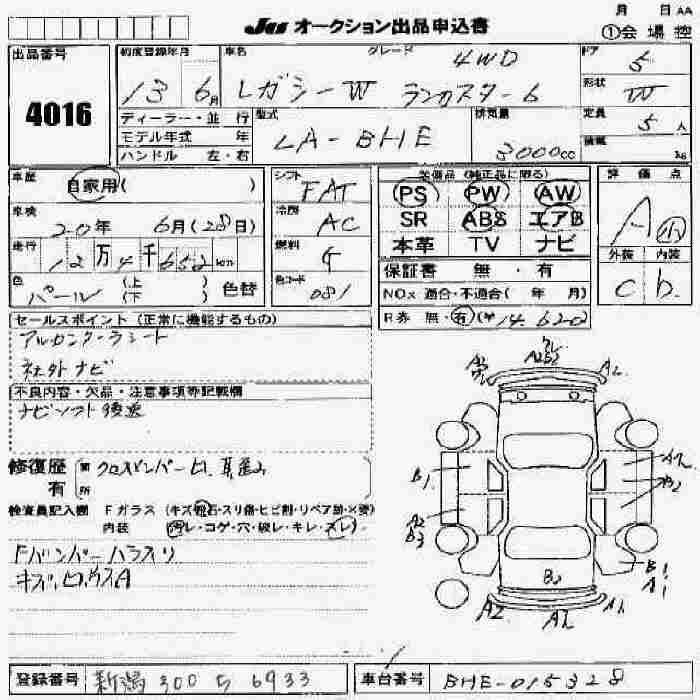 月 日 AA
JU オークション出品申込書 ①会場控
出品番号
4016
初度登録年月 車名 グレード 4WD ドア
13 6月 レガシーW ランカスター6 5
形状 W
ディーラー・並行 型式 排気量 定員
モデル年式 年 LA-BHE 3000cc 5人
ハンドル 左・右 積載 kg
車歴 自家用( ) シフト FAT 装備品(純正品に限る) 評価点
PS PW AW
車検 20年 6月(28日) 冷房 AC SR ABS エアB A
本革 TV ナビ
走行 12万4千652km 燃料 G 保証書 無・有 外装 内装
色 パール (上 下) 色替 色コード 081 NOx 適合・不適合( 年 月) C b
R券 無・有(¥14,620)
セールスポイント(正常に機能するもの)
アルカンターラシート
社外ナビ
不良内容・欠品・注意事項等記載欄
ナビソフト後送
修復歴 有 箇所 クロスメンバー凹
検査員記入欄 Fガラス(キズ・飛石・スリ傷・ヒビ割・リペア跡・×要)
内装 (汚レ・コゲ・穴・破レ・キレ・スレ)
Fバンパー
A2
A2
B1
A2
B2
A2
B3
B2
B1
A1
A2
A2
A1
登録番号 新潟 300 ち 6933 車台番号 BHE-015328